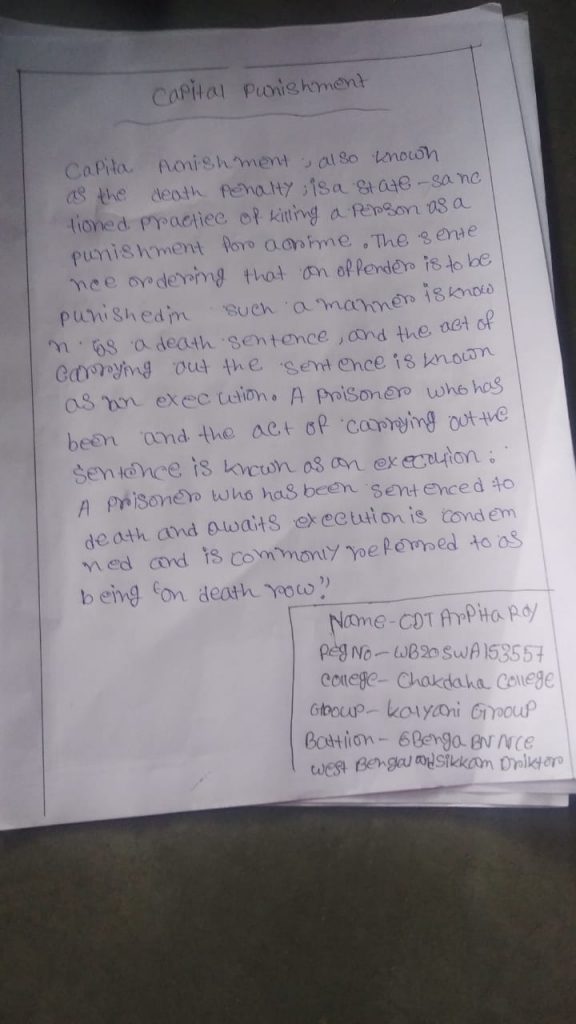 Capital Punishment
Capita Punishment, also known
as the death Penalty, is a state-sanc
tioned practice of killing a Person as a
punishment for a crime. The sente
nce ordering that an offender is to be
punished in such a manner is know
n as a death sentence, and the act of
Carrying out the sentence is known
as an execution. A prisoner who has
been and the act of carrying out the
sentence is known as an execution:
A prisoner who has been sentenced to
death and awaits execution is condem
ned and is commonly referred to as
being "on death row"
Name-CDT Arpita Roy
Reg No-WB20SWA153557
College- Chakdaha College
Group- Kalyani Group
Battlion- 6Benga BN NCC
West Bengal and Sikkam